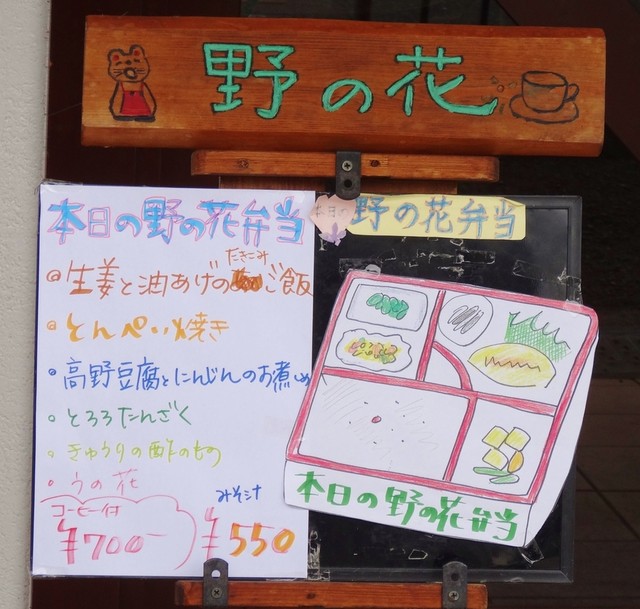 野の花
本日の野の花弁当
生姜と油あげのたきこみご飯
とんぺい焼き
高野豆腐とにんじんのお煮しめ
とろろたんざく
きゅうりの酢のもの
うの花
コーヒー付
¥700-
みそ汁
¥550
本日の野の花弁当
本日の野の花弁当